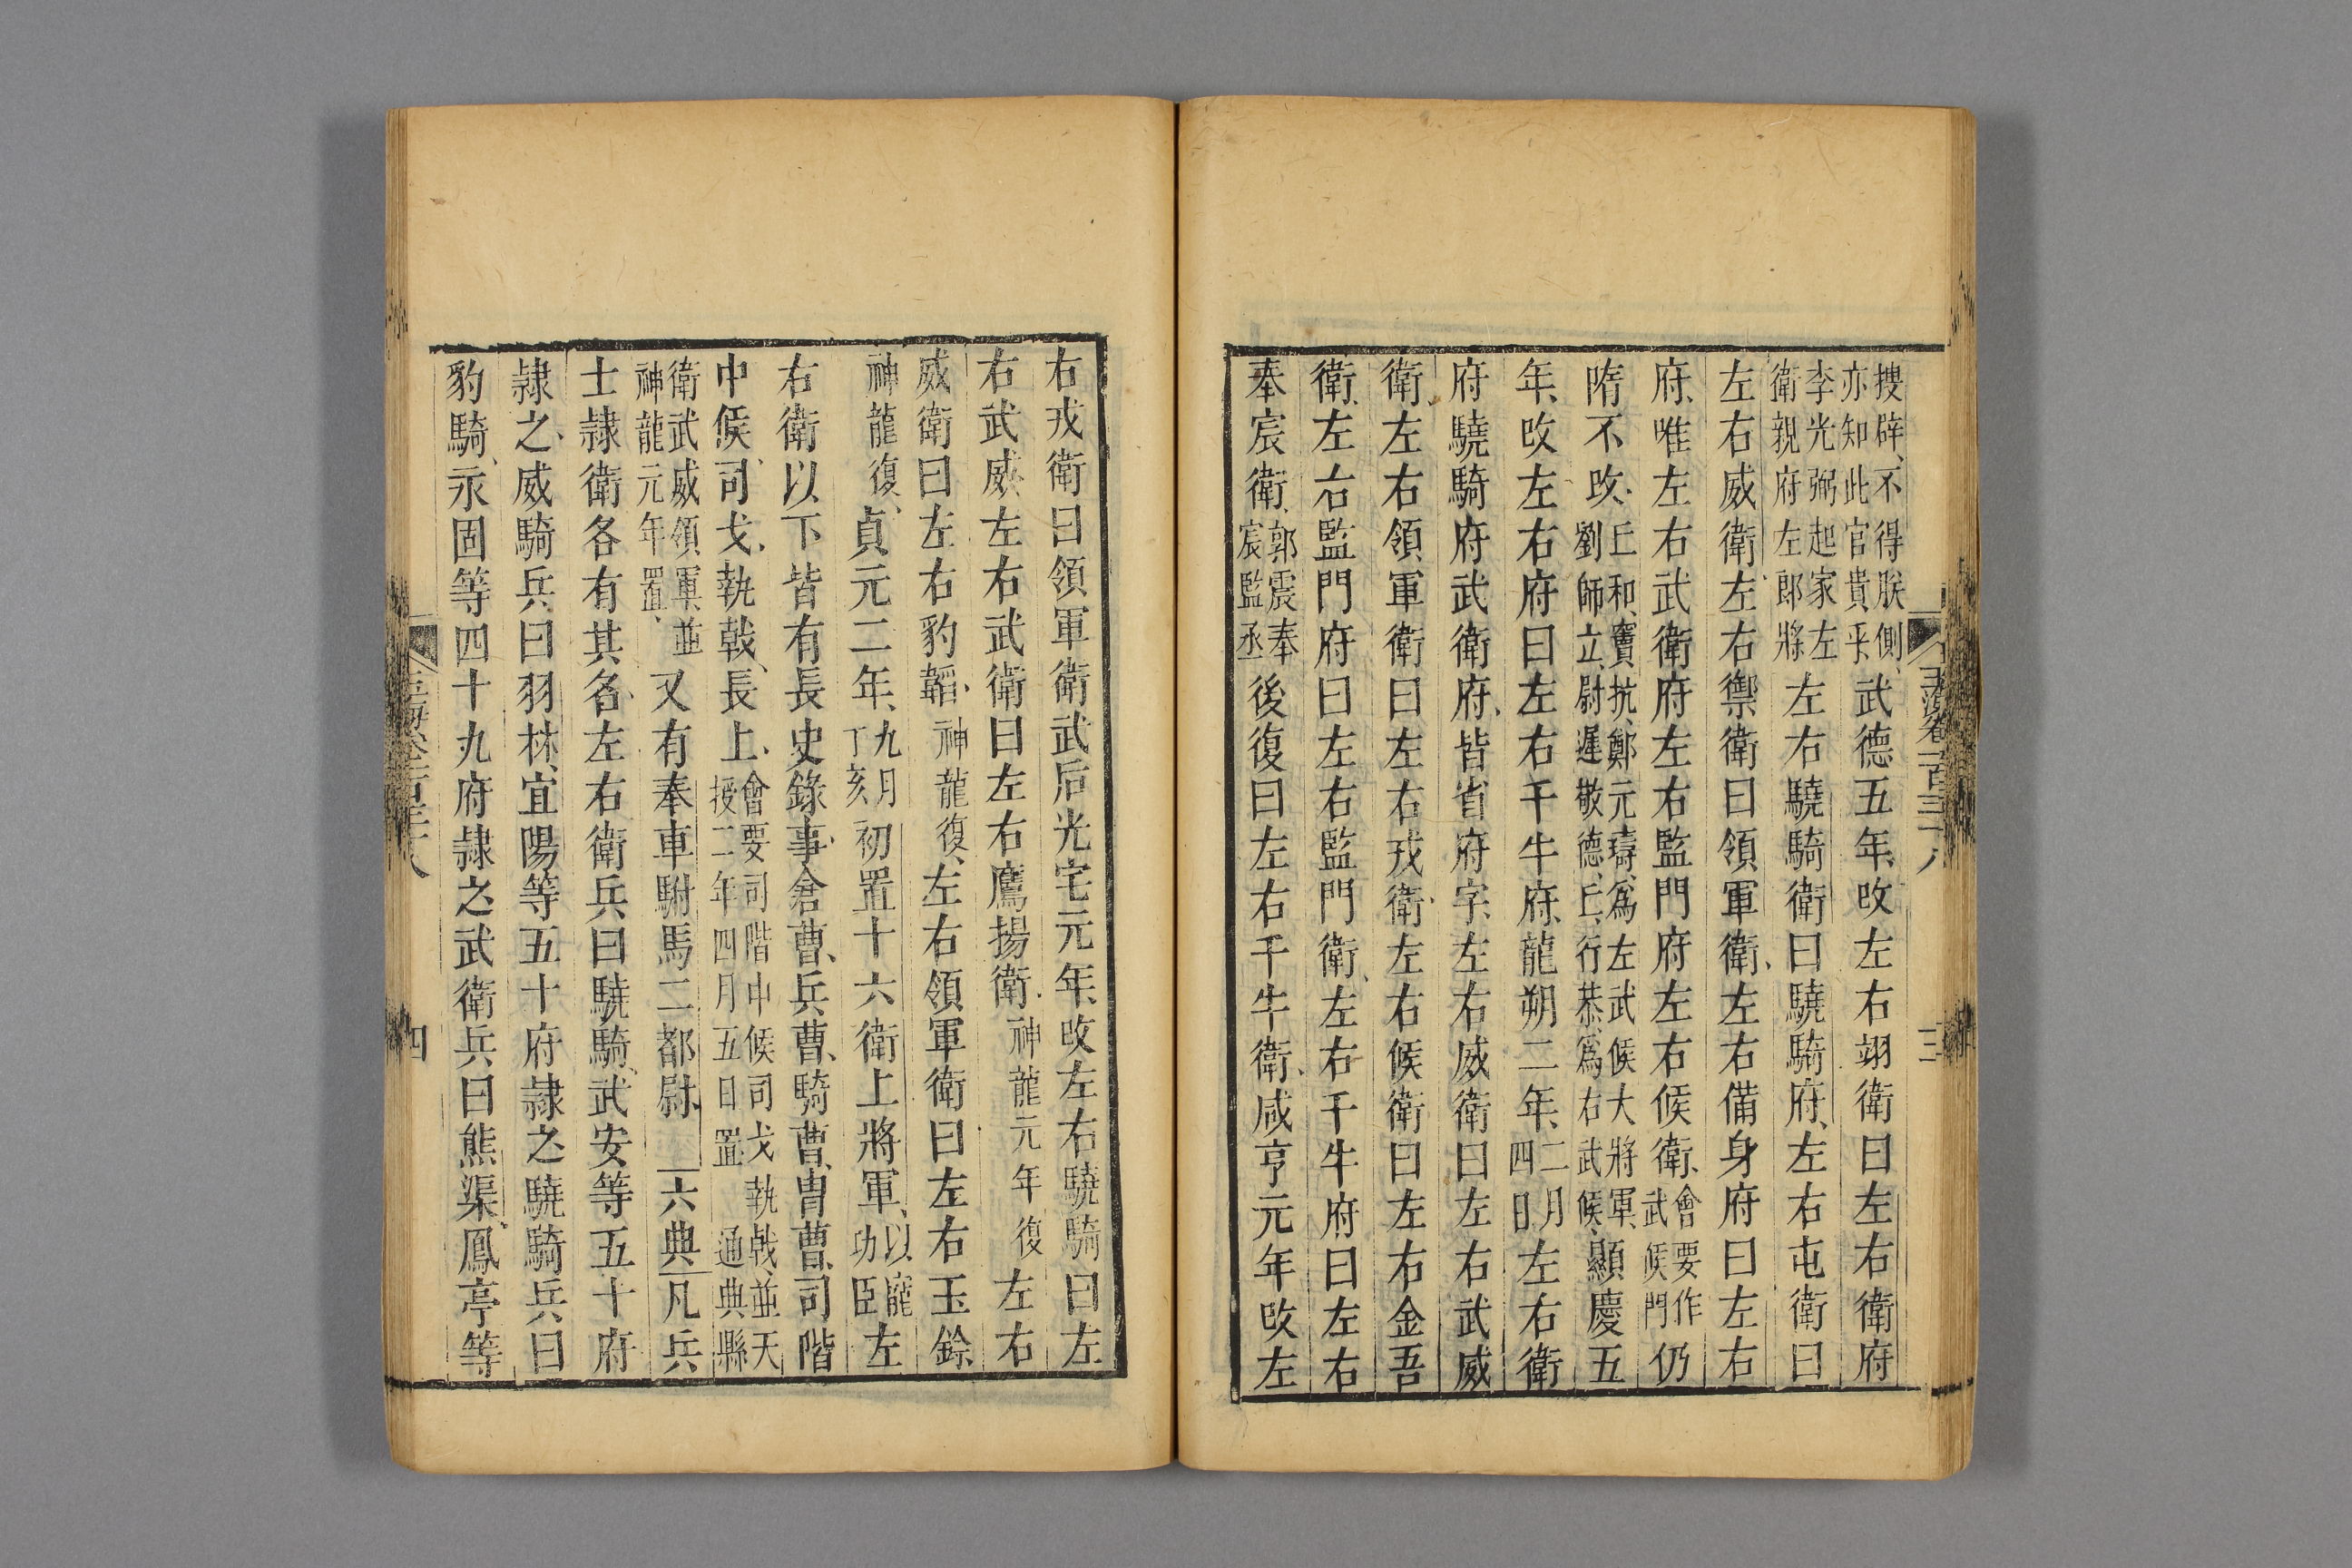 搜辟、不得朕側、
亦知此官貴乎、武德五年、改左右翊衛曰左右衛府
李光弼起家左
衛親府左郎將左右驍騎衛曰驍騎府、左右屯衛曰
左右威衛、左右禦衛曰領軍衛、左右備身府曰左右
府、唯左右武衛府左右監門府左右候衛、會要作
武候門仍
隋不改、丘和、竇抗、鄭元璹、爲左武候大將軍、
劉師立、尉遲敬德、丘行恭、爲右武候、顯慶五
年、改左右府曰左右千牛府、龍朔二年、二月
四日左右衛
府驍騎府武衛府、皆省府字、左右威衛曰左右武威
衛、左右領軍衛曰左右戎衛、左右候衛曰左右金吾
衛、左右監門府曰左右監門衛、左右千牛府曰左右
奉宸衛、郭震奉
宸監丞後復曰左右千牛衛、咸亨元年改左
玉海卷一百三十八
三
右戎衛曰領軍衛武后光宅元年、改左右驍騎曰左
右武威、左右武衛曰左右鷹揚衛、神龍元年復左右
威衛曰左右豹韜、神龍復、左右領軍衛曰左右玉鈐、
神龍復、貞元二年、九月
丁亥初置十六衛上將軍、以寵
功臣左
右衛以下皆有長史錄事、倉曹、兵曹、騎曹、冑曹、司階
中候、司戈、執戟、長上、會要司階中候司戈執戟、並天
授二年四月五日置、通典縣
衛武威領軍並
神龍元年置、又有奉車駙馬二都尉、六典凡兵
士隷衛各有其名、左右衛兵曰驍騎、武安等五十府
隷之、威騎兵曰羽林、宜陽等五十府隷之驍騎兵曰
豹騎、永固等四十九府隷之武衛兵曰熊渠、鳳亭等
四